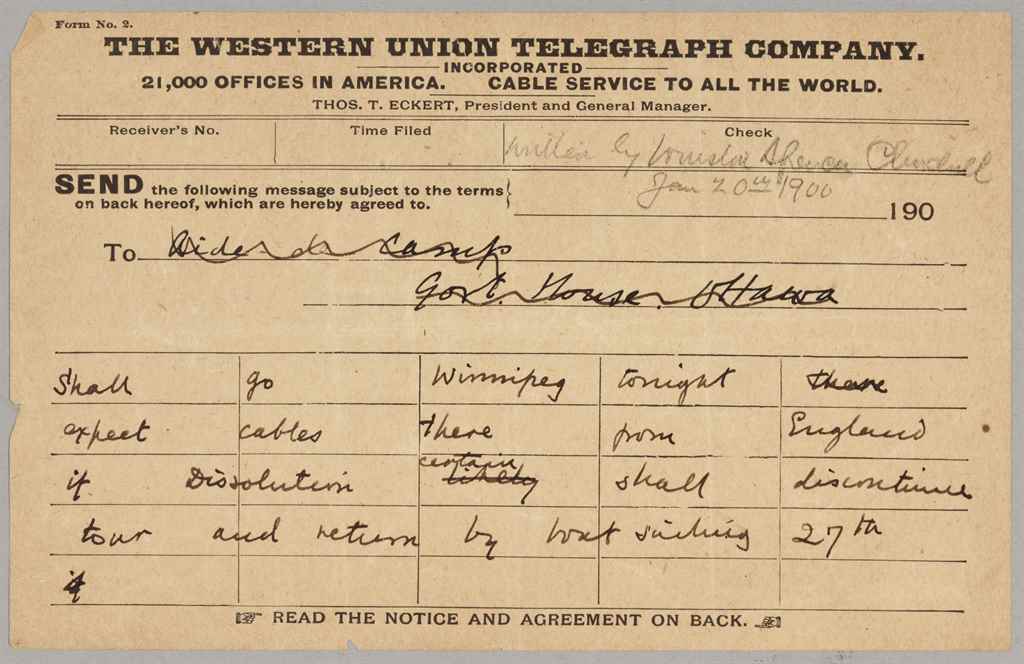 Form No. 2.
THE WESTERN UNION TELEGRAPH COMPANY.
INCORPORATED
21,000 OFFICES IN AMERICA. CABLE SERVICE TO ALL THE WORLD.
THOS. T. ECKERT, President and General Manager.
Receiver's No. Time Filed Check
written by Winston Spencer Churchill
Jan 20th 1900
SEND the following message subject to the terms
on back hereof, which are hereby agreed to.
190
To Aide de Camp
Govt. House. Ottawa
Shall go Winnipeg tonight there
expect cables there from England
certain
if Dissolution likely shall discontinue
tour and return by boat sailing 27th
if
READ THE NOTICE AND AGREEMENT ON BACK.